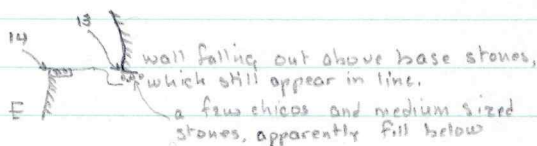 13
14
wall falling out above base stones,
which still appear in line.
a few chicos and medium sized
E
stones, apparently fill below